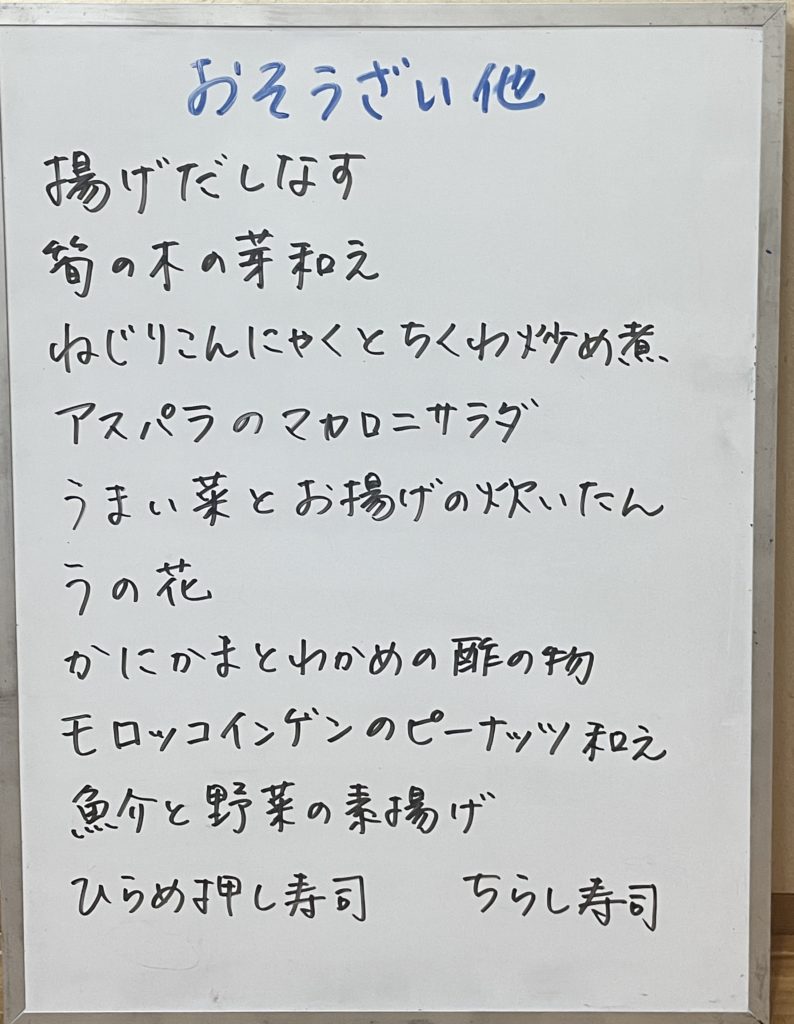 おそうざい他
揚げだしなす
筍の木の芽和え
ねじりこんにゃくとちくわ炒め煮
アスパラのマカロニサラダ
うまい菜とお揚げの炊いたん
うの花
かにかまとわかめの酢の物
モロッコインゲンのピーナッツ和え
魚介と野菜の素揚げ
ひらめ押し寿司　ちらし寿司